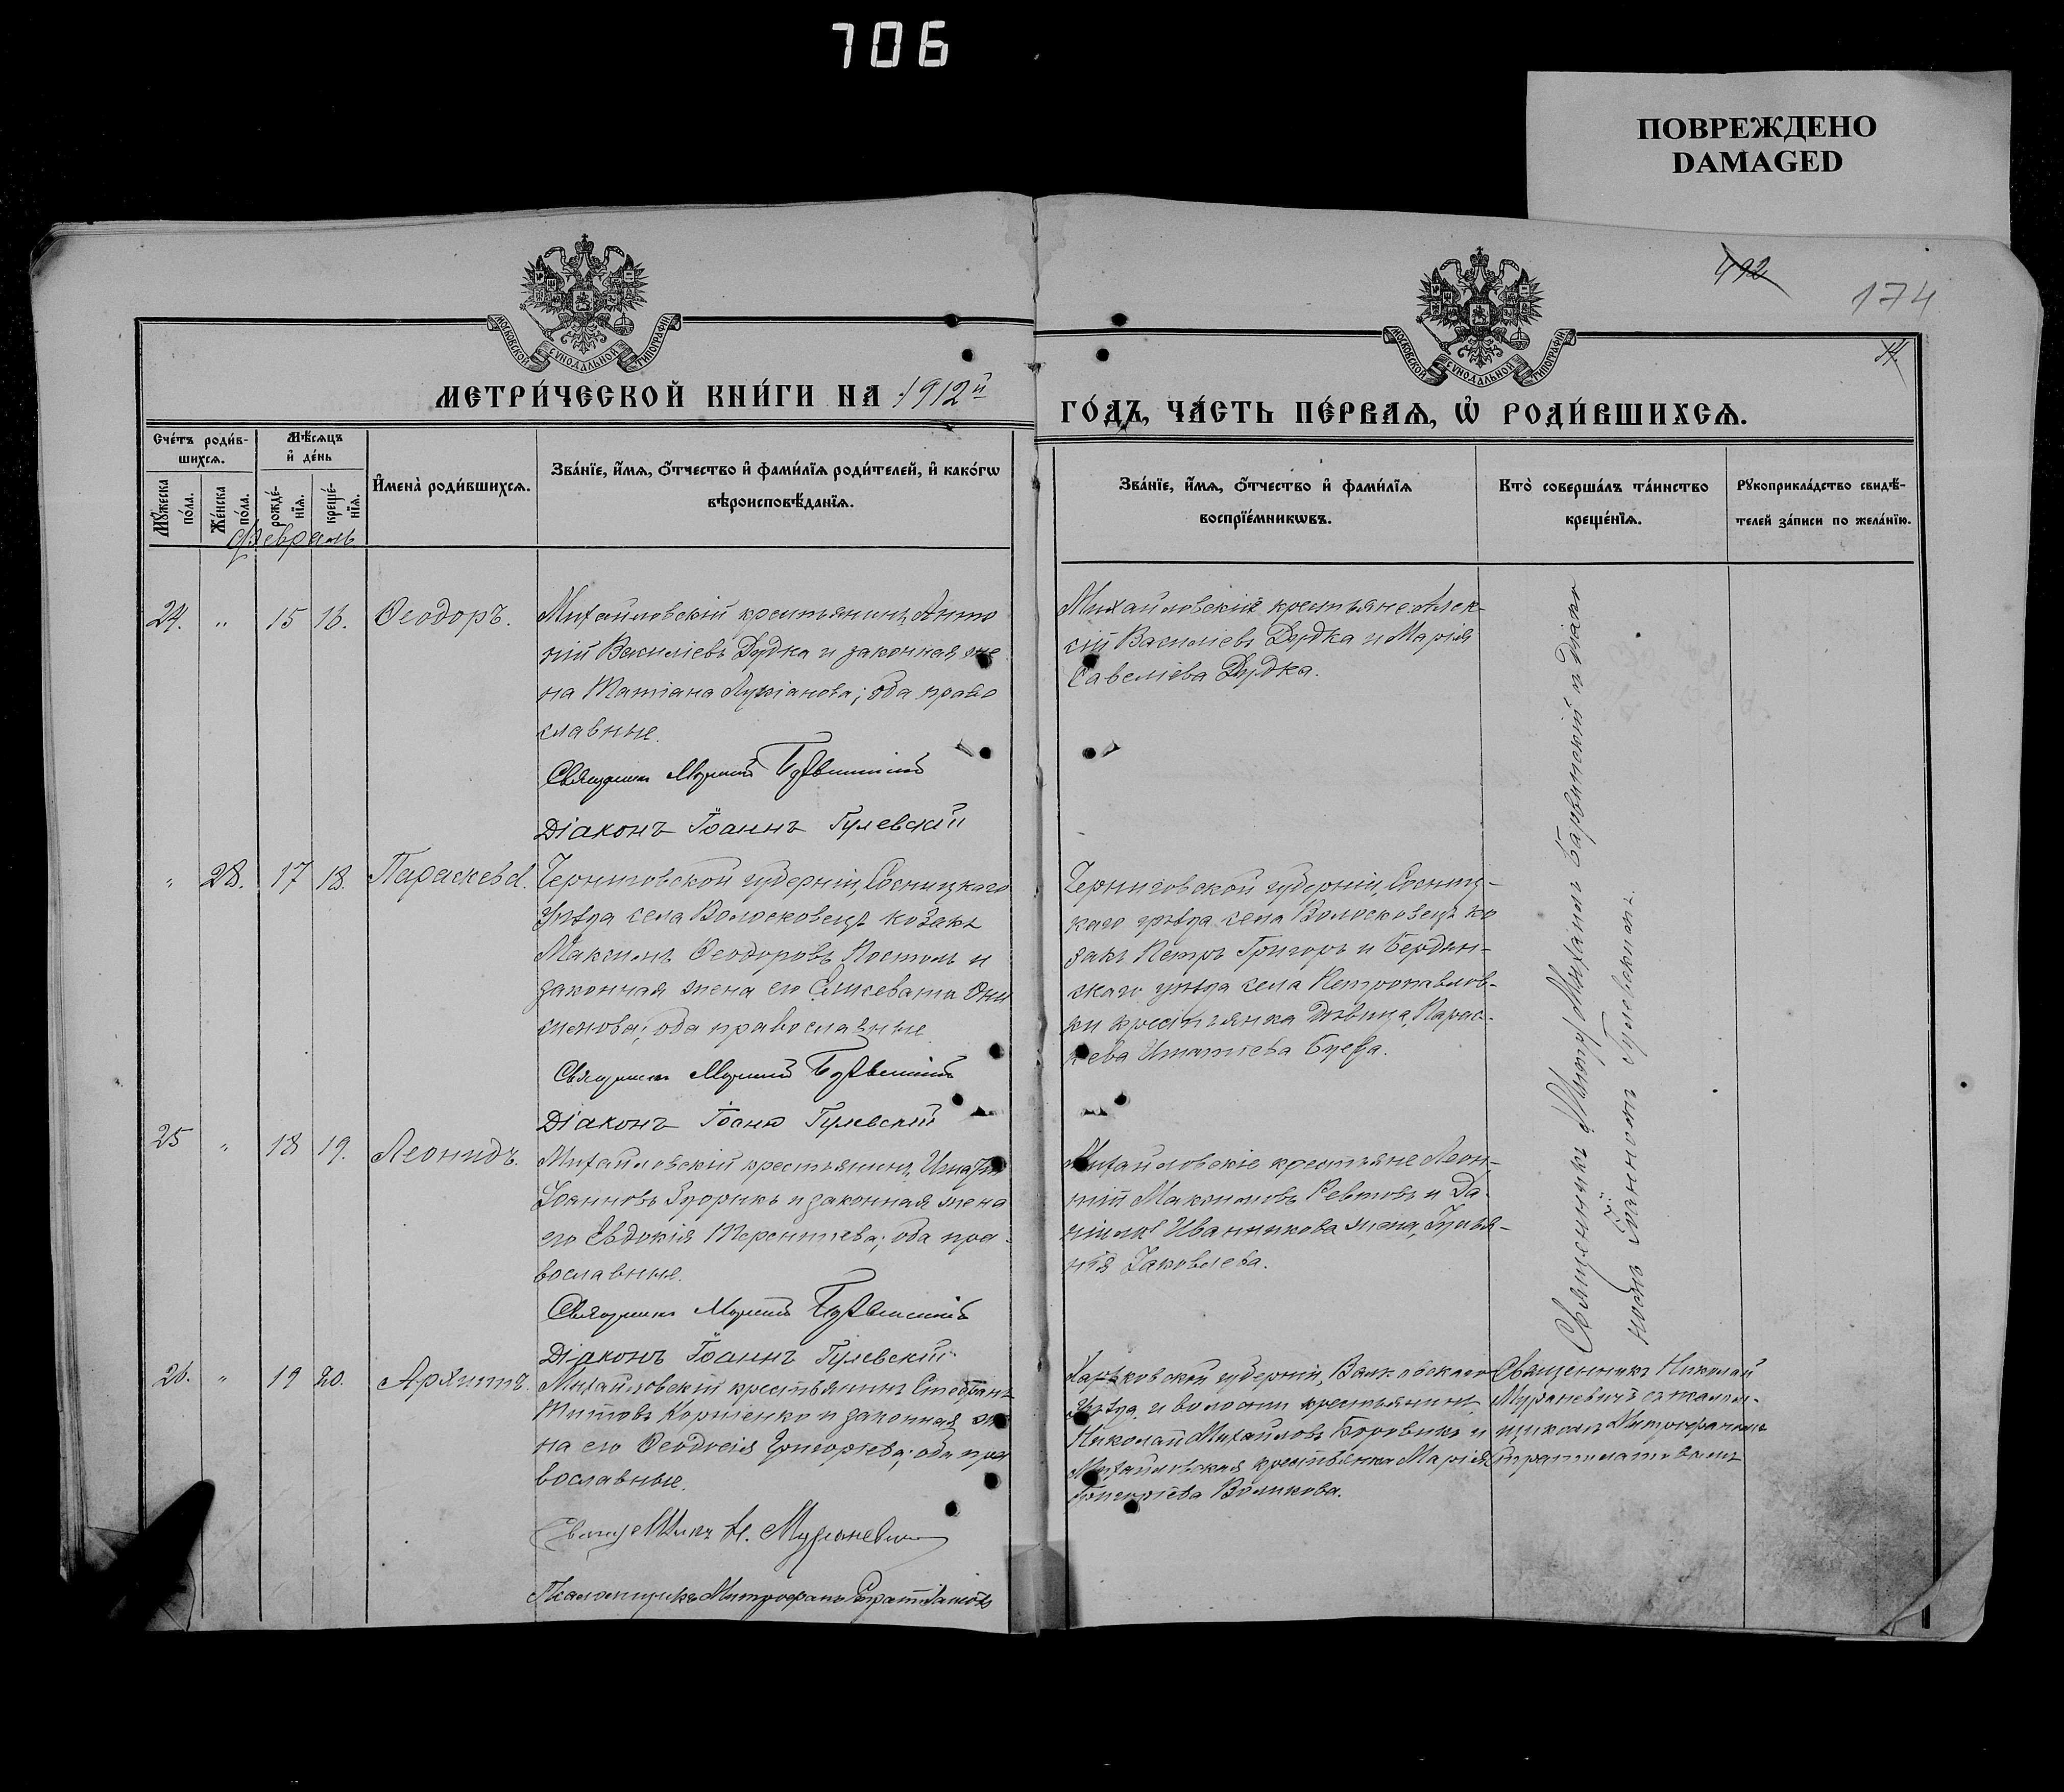 706
ПОВРЕЖДЕНО
DAMAGED
492
174
МОСКОВСКОЙ СѴНОДАЛЬНОЙ ТИПОГРАФІИ
МОСКОВСКОЙ СѴНОДАЛЬНОЙ ТИПОГРАФІИ
МЕТРИ́ЧЕСКОЙ КНИ́ГИ НА 1912й
ГО́ДЪ, ЧА́СТЬ ПЕ́РВАѦ, Ѽ РОДИ́ВШИХСѦ.
Сче́тъ роди́в-
шихсѧ.
Мꙋ́жеска по́ла.
Же́нска по́ла.
Мѣ́сѧцъ
и҆ де́нь
рожде́-
нїѧ.
креще́-
нїѧ.
И҆мена̀ роди́вшихсѧ.
Зва́нїе, и҆́мѧ, ѻ҆́тчество и҆ фами́лїѧ роди́телей, и҆ како́гѡ
вѣроисповѣ́данїѧ.
Зва́нїе, и҆́мѧ, ѻ҆́тчество и҆ фами́лїѧ
воспрїе́мникѡвъ.
Кто̀ соверша́лъ та́инство
креще́нїѧ.
Рꙋкоприкла́дство свидѣ́-
телей за́писи по жела́нїю.
Февраль
24. " 15 16. Ѳеодоръ.
Михайловскій крестьянинъ Анто
ній Василіевъ Дудка и законная же
на Татіана Лукіанова; оба право
славные.
Священникъ
Діаконъ Іоаннъ Гулевскій
Михайловскіе крестьяне Алек-
сій Василіевъ Дудка и Марія
Савеліева Дудка.
" 28. 17 18. Параскева.
Черниговской губерніи, Сосницкаго
уѣзда села Волосковецъ козакъ
Максимъ Ѳеодоровъ Постолъ и
законная жена его Елисавета Они
симова; оба православные.
Священникъ
Діаконъ Іоаннъ Гулевскій
Черниговской губерніи, Сосниц-
каго уѣзда села Волосковецъ ко
закъ Петръ Григоръ и Бердян-
скаго уѣзда села Петропавлов-
ки крестьянка дѣвица, Парас-
кева Игнатіева
25 " 18 19. Леонидъ.
Михайловскій крестьянинъ Игнатій
Іоанновъ и законная жена
его Евдокія Терентіева; оба пра-
вославные.
Священникъ
Діаконъ Іоаннъ Гулевскій
Михайловскіе крестьяне Леон-
тій Максимовъ и Да-
Иванникова жена,
Іаковлева.
26. " 19 20. Архиппъ.
Михайловскій крестьянинъ Стефанъ
Титовъ Корніенко и законная же
на его Ѳеодосія Григорьева; оба пра
вославные.
Священникъ Н. Мураневичъ
Псаломщикъ Митрофанъ
Харьковской губерніи, Валковскаго
уѣзда и волости крестьянинъ
Николай Михайловъ Боровикъ и
Михайловская крестьянка Марія
Григоріева Воликова.
Священникъ Михаилъ и діако
номъ Іоанномъ Гулевскимъ.
Священникъ Николай
Мураневичъ съ псалом-
щикомъ Митрофаномъ